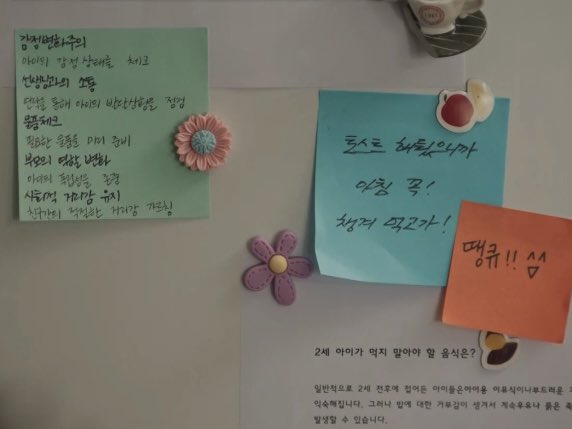 감정변화주의
아이의 감정 상태를 체크
선생님과의 소통
연락을 통해 아이의 발달상황을 점검
물품체크
필요한 물품을 미리 준비
부모의 역할 변화
아이의 독립성을 존중
사회적 거리감 유지
친구간의 적절한 거리감 가르침
토스트 해뒀으니까
아침 꼭!
챙겨 먹고가!
땡큐!! ^^
2세 아이가 먹지 말아야 할 음식은?
일반적으로 2세 전후에 접어든 아이들은아이용 이유식이나부드러운
익숙해집니다. 그러나 밥에 대한 거부감이 생겨서 계속우유나 묽은
발생할 수 있습니다.